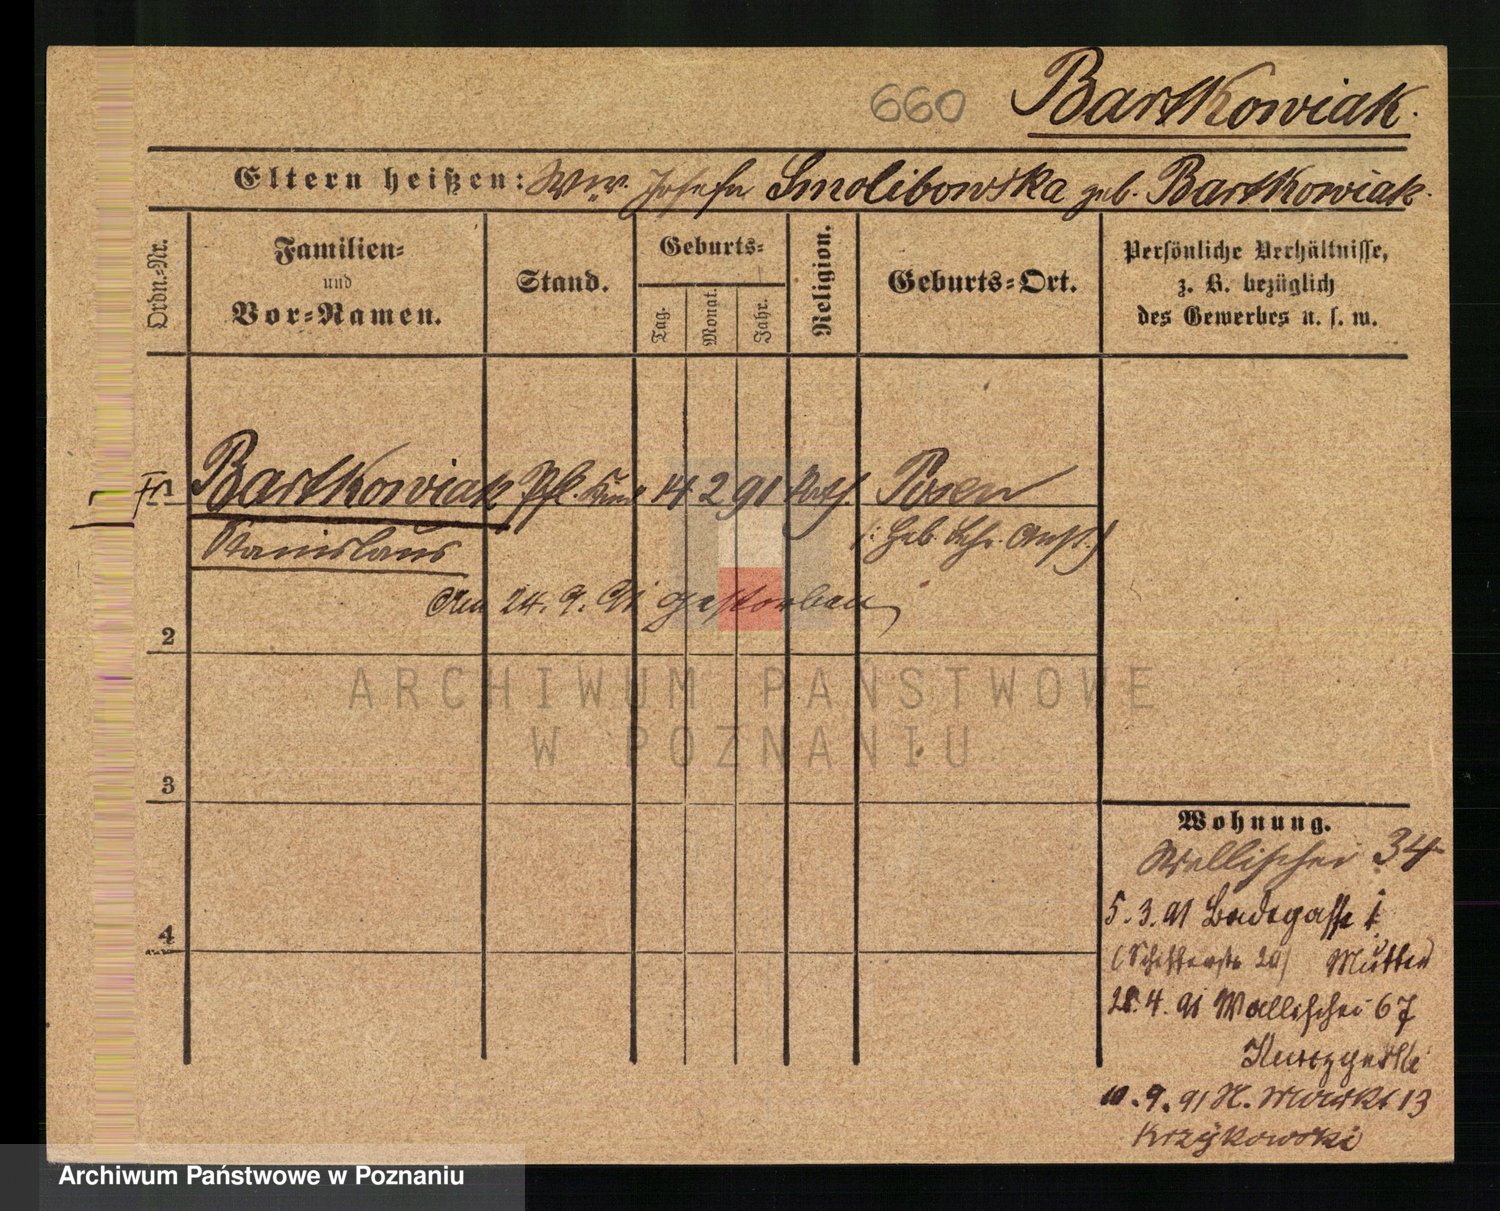 660 Bartkowiak.
Eltern heißen: Ww. Josefa Smolibowska geb. Bartkowiak.
Ordn.-Nr.
Familien-
und
Vor-Namen.
Stand.
Geburts-
Tag.
Monat.
Jahr.
Religion.
Geburts-Ort.
Persönliche Verhältnisse,
z. B. bezüglich
des Gewerbes u. s. w.
1 Bartkowiak Pfl. Kind 14 2 91 Kath. Posen
Stanislaus (: Geb. Anst.)
Am 24. 9. 91 gestorben
2
3
4
Wohnung.
Wallischei 34
5. 3. 91 Badegasse 1
Mutter
28. 4. 91 Wallischei 67
10. 9. 91 N. Markt 13
Krzykowski
ARCHIWUM PAŃSTWOWE
W POZNANIU
Archiwum Państwowe w Poznaniu